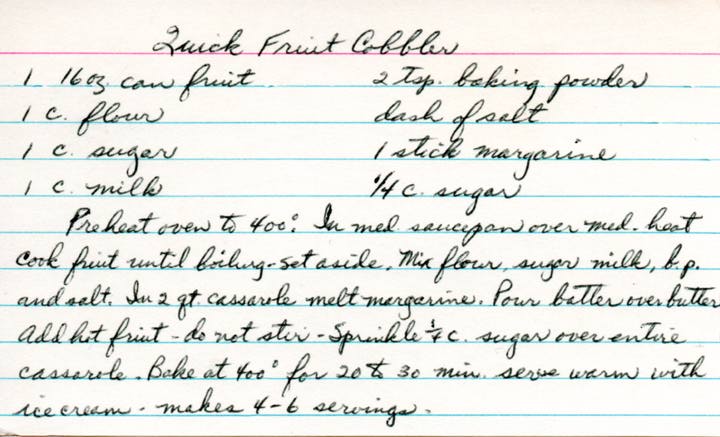 Quick Fruit Cobbler
1 16 oz can fruit 2 tsp. baking powder
1 c. flour dash of salt
1 c. sugar 1 stick margarine
1 c. milk 1/4 c. sugar
Preheat oven to 400°. In med saucepan over med. heat
cook fruit until boiling - set aside. Mix flour, sugar milk, b.p.
and salt. In 2 qt. cassarole melt margarine. Pour batter over butter
Add hot fruit - do not stir - Sprinkle 1/4 c. sugar over entire
cassarole. Bake at 400° for 20 to 30 min. serve warm with
ice cream - makes 4-6 servings.